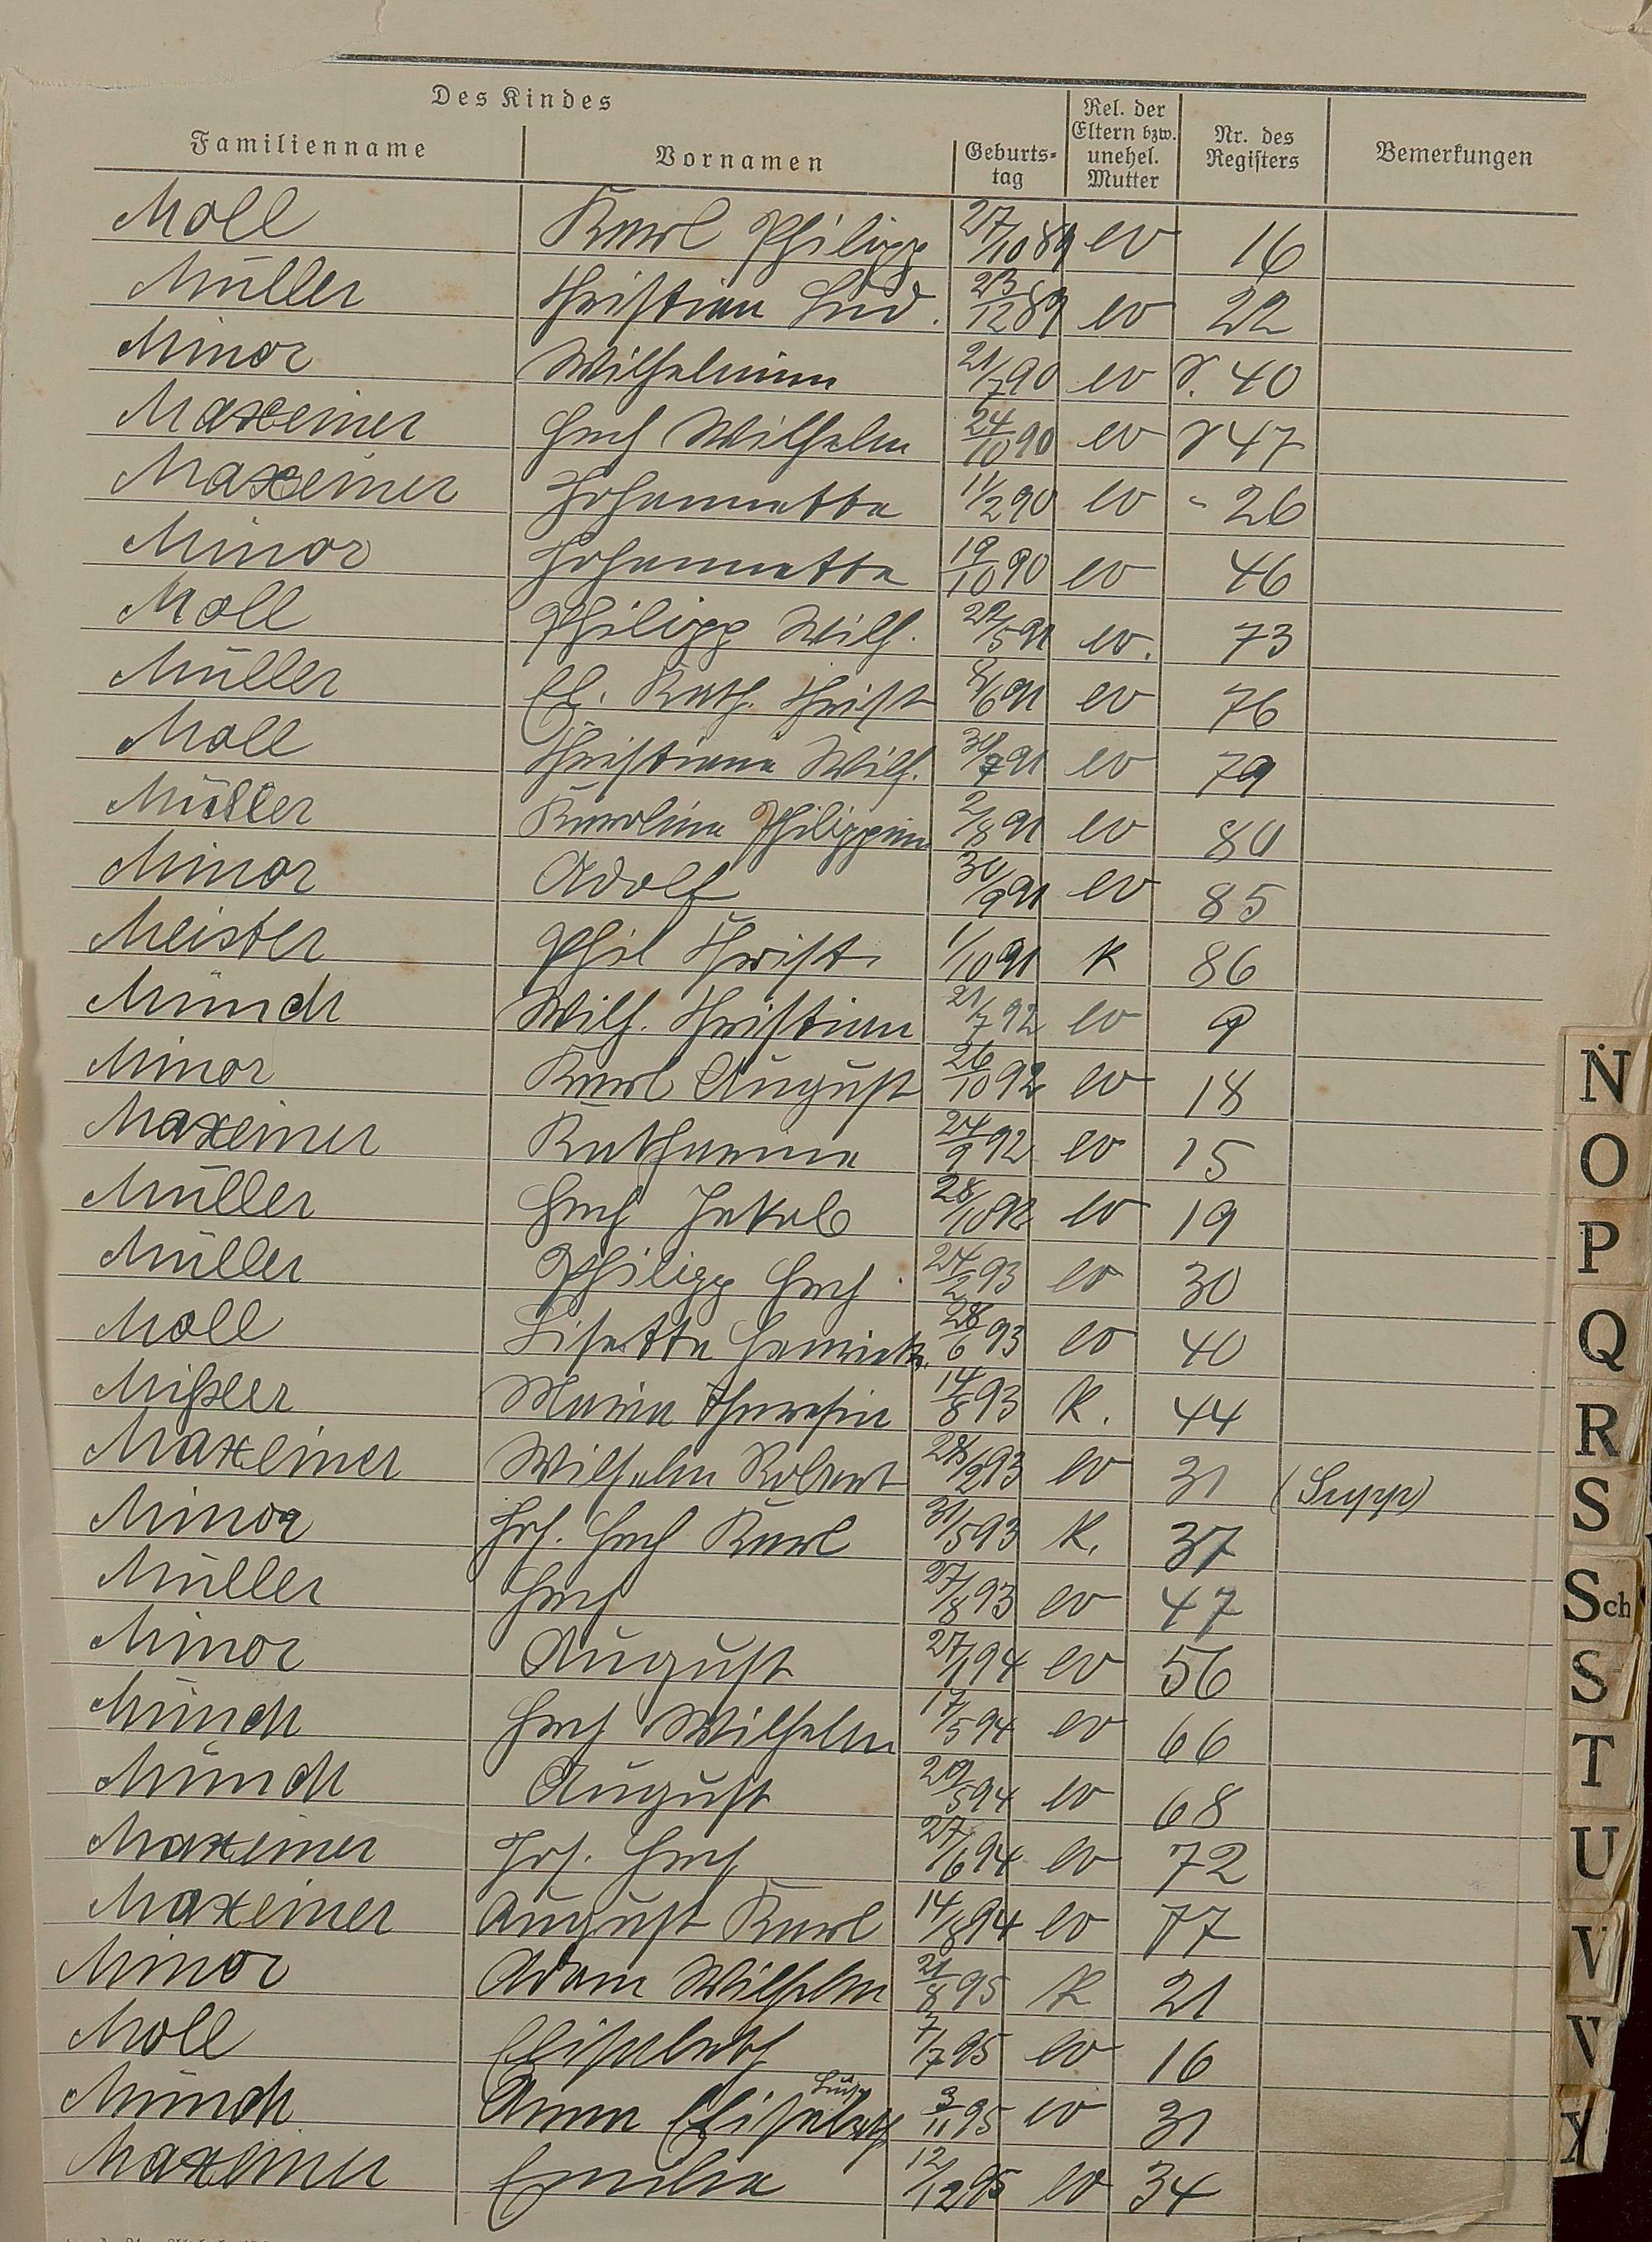 Des Kindes
Familienname Vornamen Geburts-tag Rel. der Eltern bzw. unehel. Mutter Nr. des Registers Bemerkungen
Moll Karl Philipp 27/10 89 ev 16
Müller Christian Lud. 23/12 89 ev 22
Minor Wilhelmine 21/7 90 ev 40
Maxeiner Hch Wilhelm 24/10 90 ev 47
Maxeiner Johannette 11/2 90 ev - 26
Minor Johannette 19/10 90 ev 46
Moll Philipp Wilh. 5 91 ev. 73
Müller El. Kath. Christ 6 91 ev 76
Moll Christiane Wilh. 30/7 91 ev 79
Müller Karoline Philippine 2/8 91 ev 80
Minor Adolf 30/9 91 ev 85
Meister Phil Christ. 1/10 91 K 86
Münch Wilh. Christian 21/7 92 ev 9
Minor Karl August 26/10 92 ev 18
Maxeiner Katharina 24/9 92 ev 15
Müller Hch Jakob 28/10 92 ev 19
Müller Philipp Hch. 24/2 93 ev 30
Moll Lisette Henriette 28/6 93 ev 40
Mißler Maria Theresia 14/8 93 K. 44
Maxeiner Wilhelm Robert 28/2 93 ev 31 (Supp)
Minor Joh. Hch Karl 31/5 93 K. 37
Müller Hch 27/8 93 ev 47
Minor August 27/1 94 ev 56
Münch Hch Wilhelm 17/5 94 ev 66
Münch August 29/5 94 ev 68
Maxeiner Joh. Hch 27/6 94 ev 72
Maxeiner August Karl 14/8 94 ev 77
Minor Adam Wilhelm 21/8 95 K 21
Moll Elisabeth 7/7 95 ev 16
Münch Anna Elisabeth Luise 3/11 95 ev 31
Maxeiner Emilie 12/12 95 ev 34
N
O
P
Q
R
S
Sch
S
T
U
V